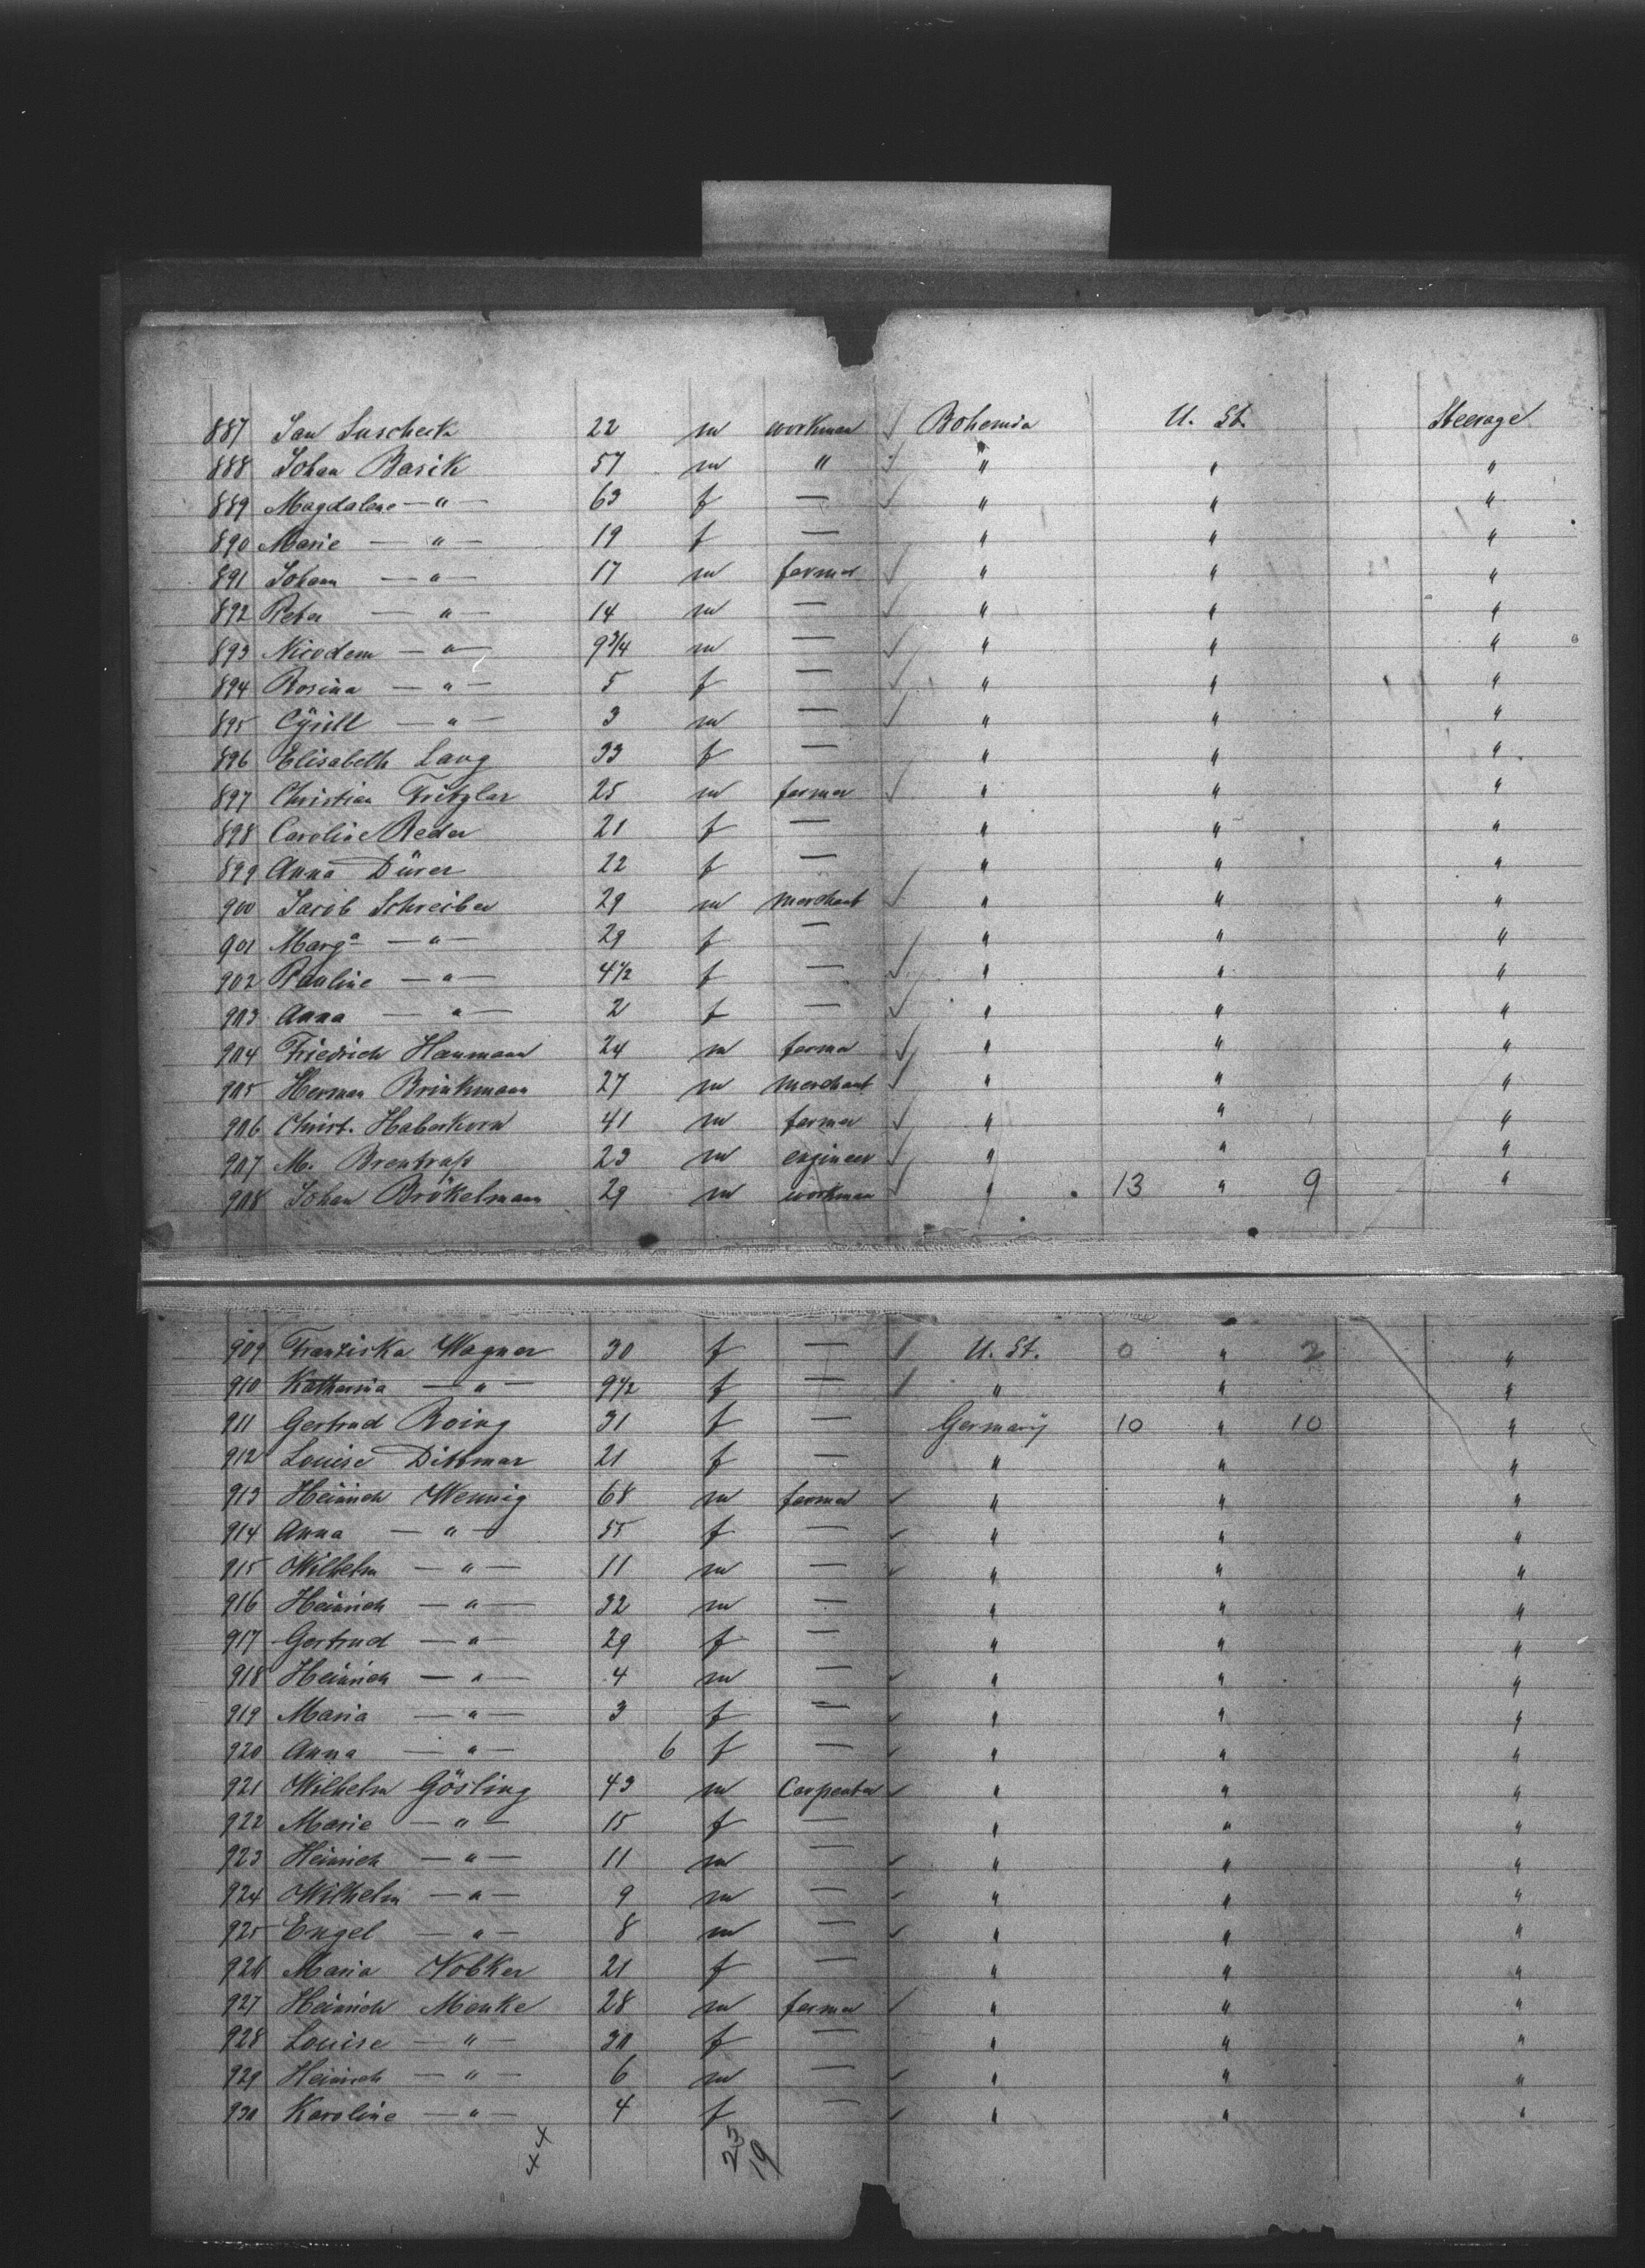 887 Jan Suscheck 22 m workman Bohemia U. St. Steerage
888 Johan Basik 57 m " " " "
889 Magdalene — " — 63 f — " " "
890 Marie — " — 19 f — " " "
891 Johann — " — 17 m farmer " " "
892 Peter — " — 14 m — " " "
893 Nicodem — " — 9 3/4 m — " " "
894 Rosina — " — 5 f — " " "
895 Cÿrill — " — 3 m — " " "
896 Elisabeth Lang 33 f — " " "
897 Christian Fritzlar 25 m farmer " " "
898 Caroline Reder 21 f — " " "
899 Anna Dürer 22 f — " " "
900 Jacob Schreiber 29 m merchant " " "
901 Marga — " — 29 f — " " "
902 Pauline — " — 4 1/2 f — " " "
903 Anna — " — 2 f — " " "
904 Friedrich Haumann 24 m farmer " " "
905 Herman Brinkmann 27 m merchant " " "
906 Christ. Haberkorn 41 m farmer " " "
907 M. Brentrass 23 m engineer " " "
908 Johan Brökelmann 29 m workman " 13 " 9 "
909 Franziska Wagner 30 f — U. St. 0 " 2 "
910 Katharina — " — 9 1/2 f — " " "
911 Gertrud Roing 31 f — Germanÿ 10 " 10 "
912 Louise Dittmar 21 f — " " "
913 Heinrich Wennig 68 m farmer " " "
914 Anna — " — 55 f — " " "
915 Wilhelm — " — 11 m — " " "
916 Heinrich — " — 32 m — " " "
917 Gertrud — " — 29 f — " " "
918 Heinrich — " — 4 m — " " "
919 Maria — " — 3 f — " " "
920 Anna — " — 6 f — " " "
921 Wilhelm Gösling 43 m Carpenter " " "
922 Marie — " — 15 f — " " "
923 Heinrich — " — 11 m — " " "
924 Wilhelm — " — 9 m — " " "
925 Engel — " — 8 m — " " "
926 Maria Kobker 21 f — " " "
927 Heinrich Menke 28 m farmer " " "
928 Louise — " — 30 f — " " "
929 Heinrich — " — 6 m — " " "
930 Karoline — " — 4 f — " " "
44 25 19